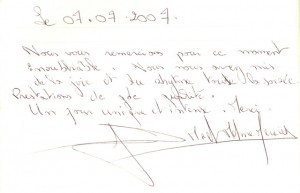 Le 07.07.2007.
Nous vous remercions pour ce moment
inoubliable. Nous nous avez mis
de la joie et du rythme toute la soirée
Prestations de qualité.
Un jour unique et intense. Merci.